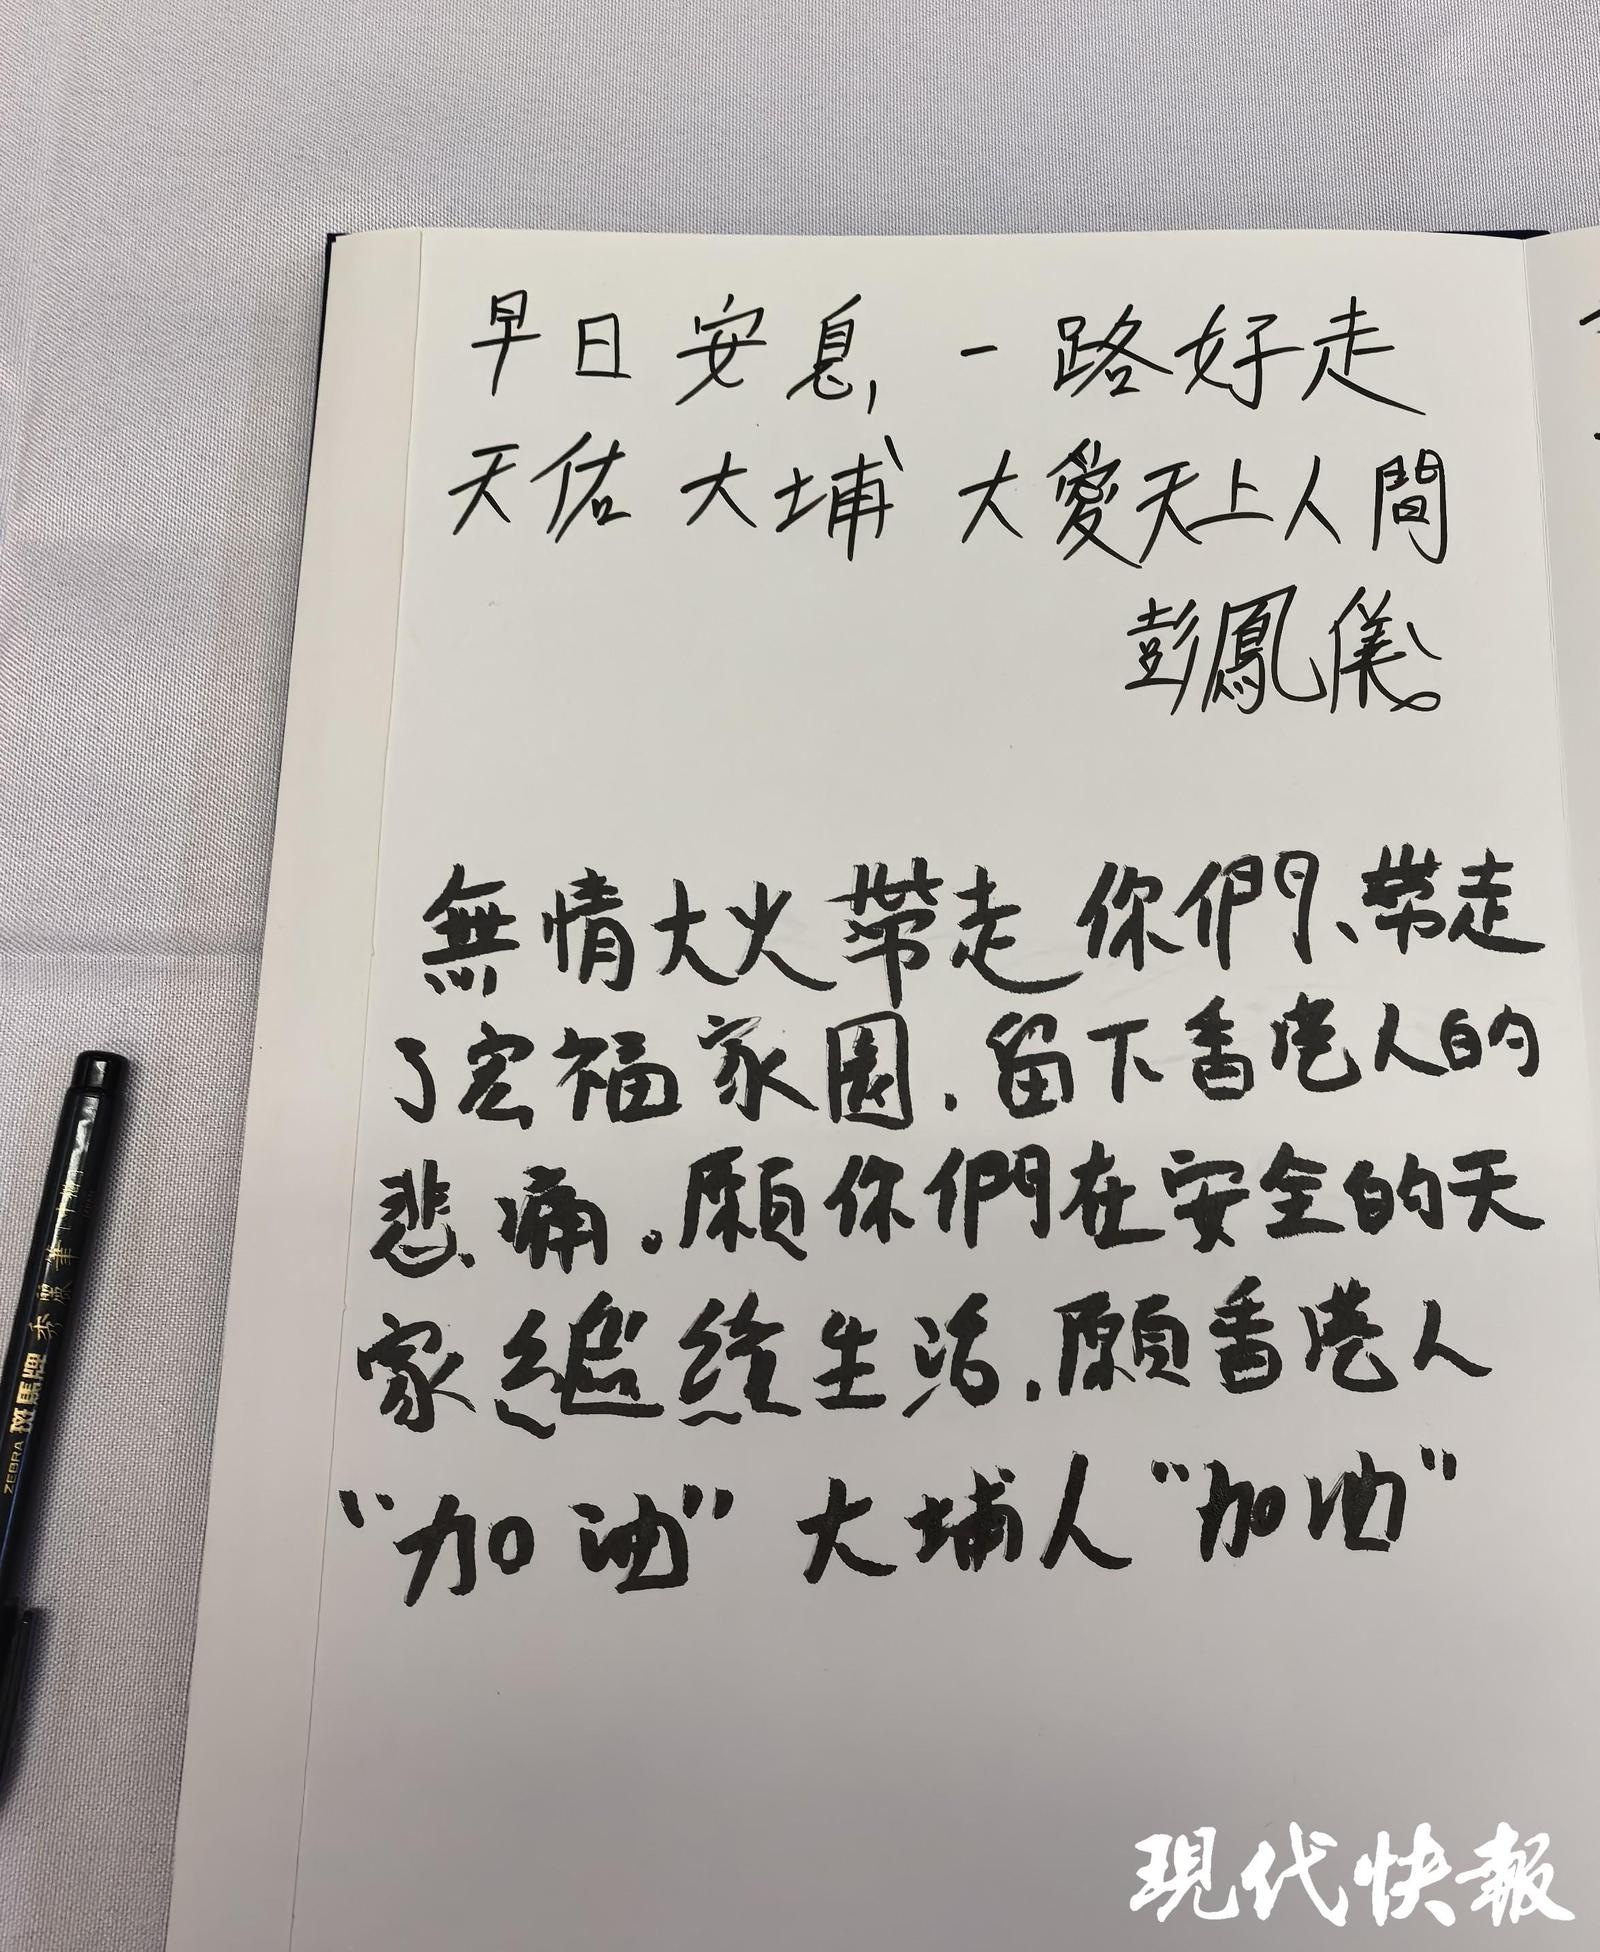 早日安息,一路好走
天佑大埔 大愛天上人間
彭鳳儀
無情大火帶走你們、帶走
了宏福家園.留下香港人的
悲痛。願你們在安全的天
家繼續生活.願香港人
"加油"大埔人"加油"
ZEBRA 斑馬牌 秀麗筆
現代快報